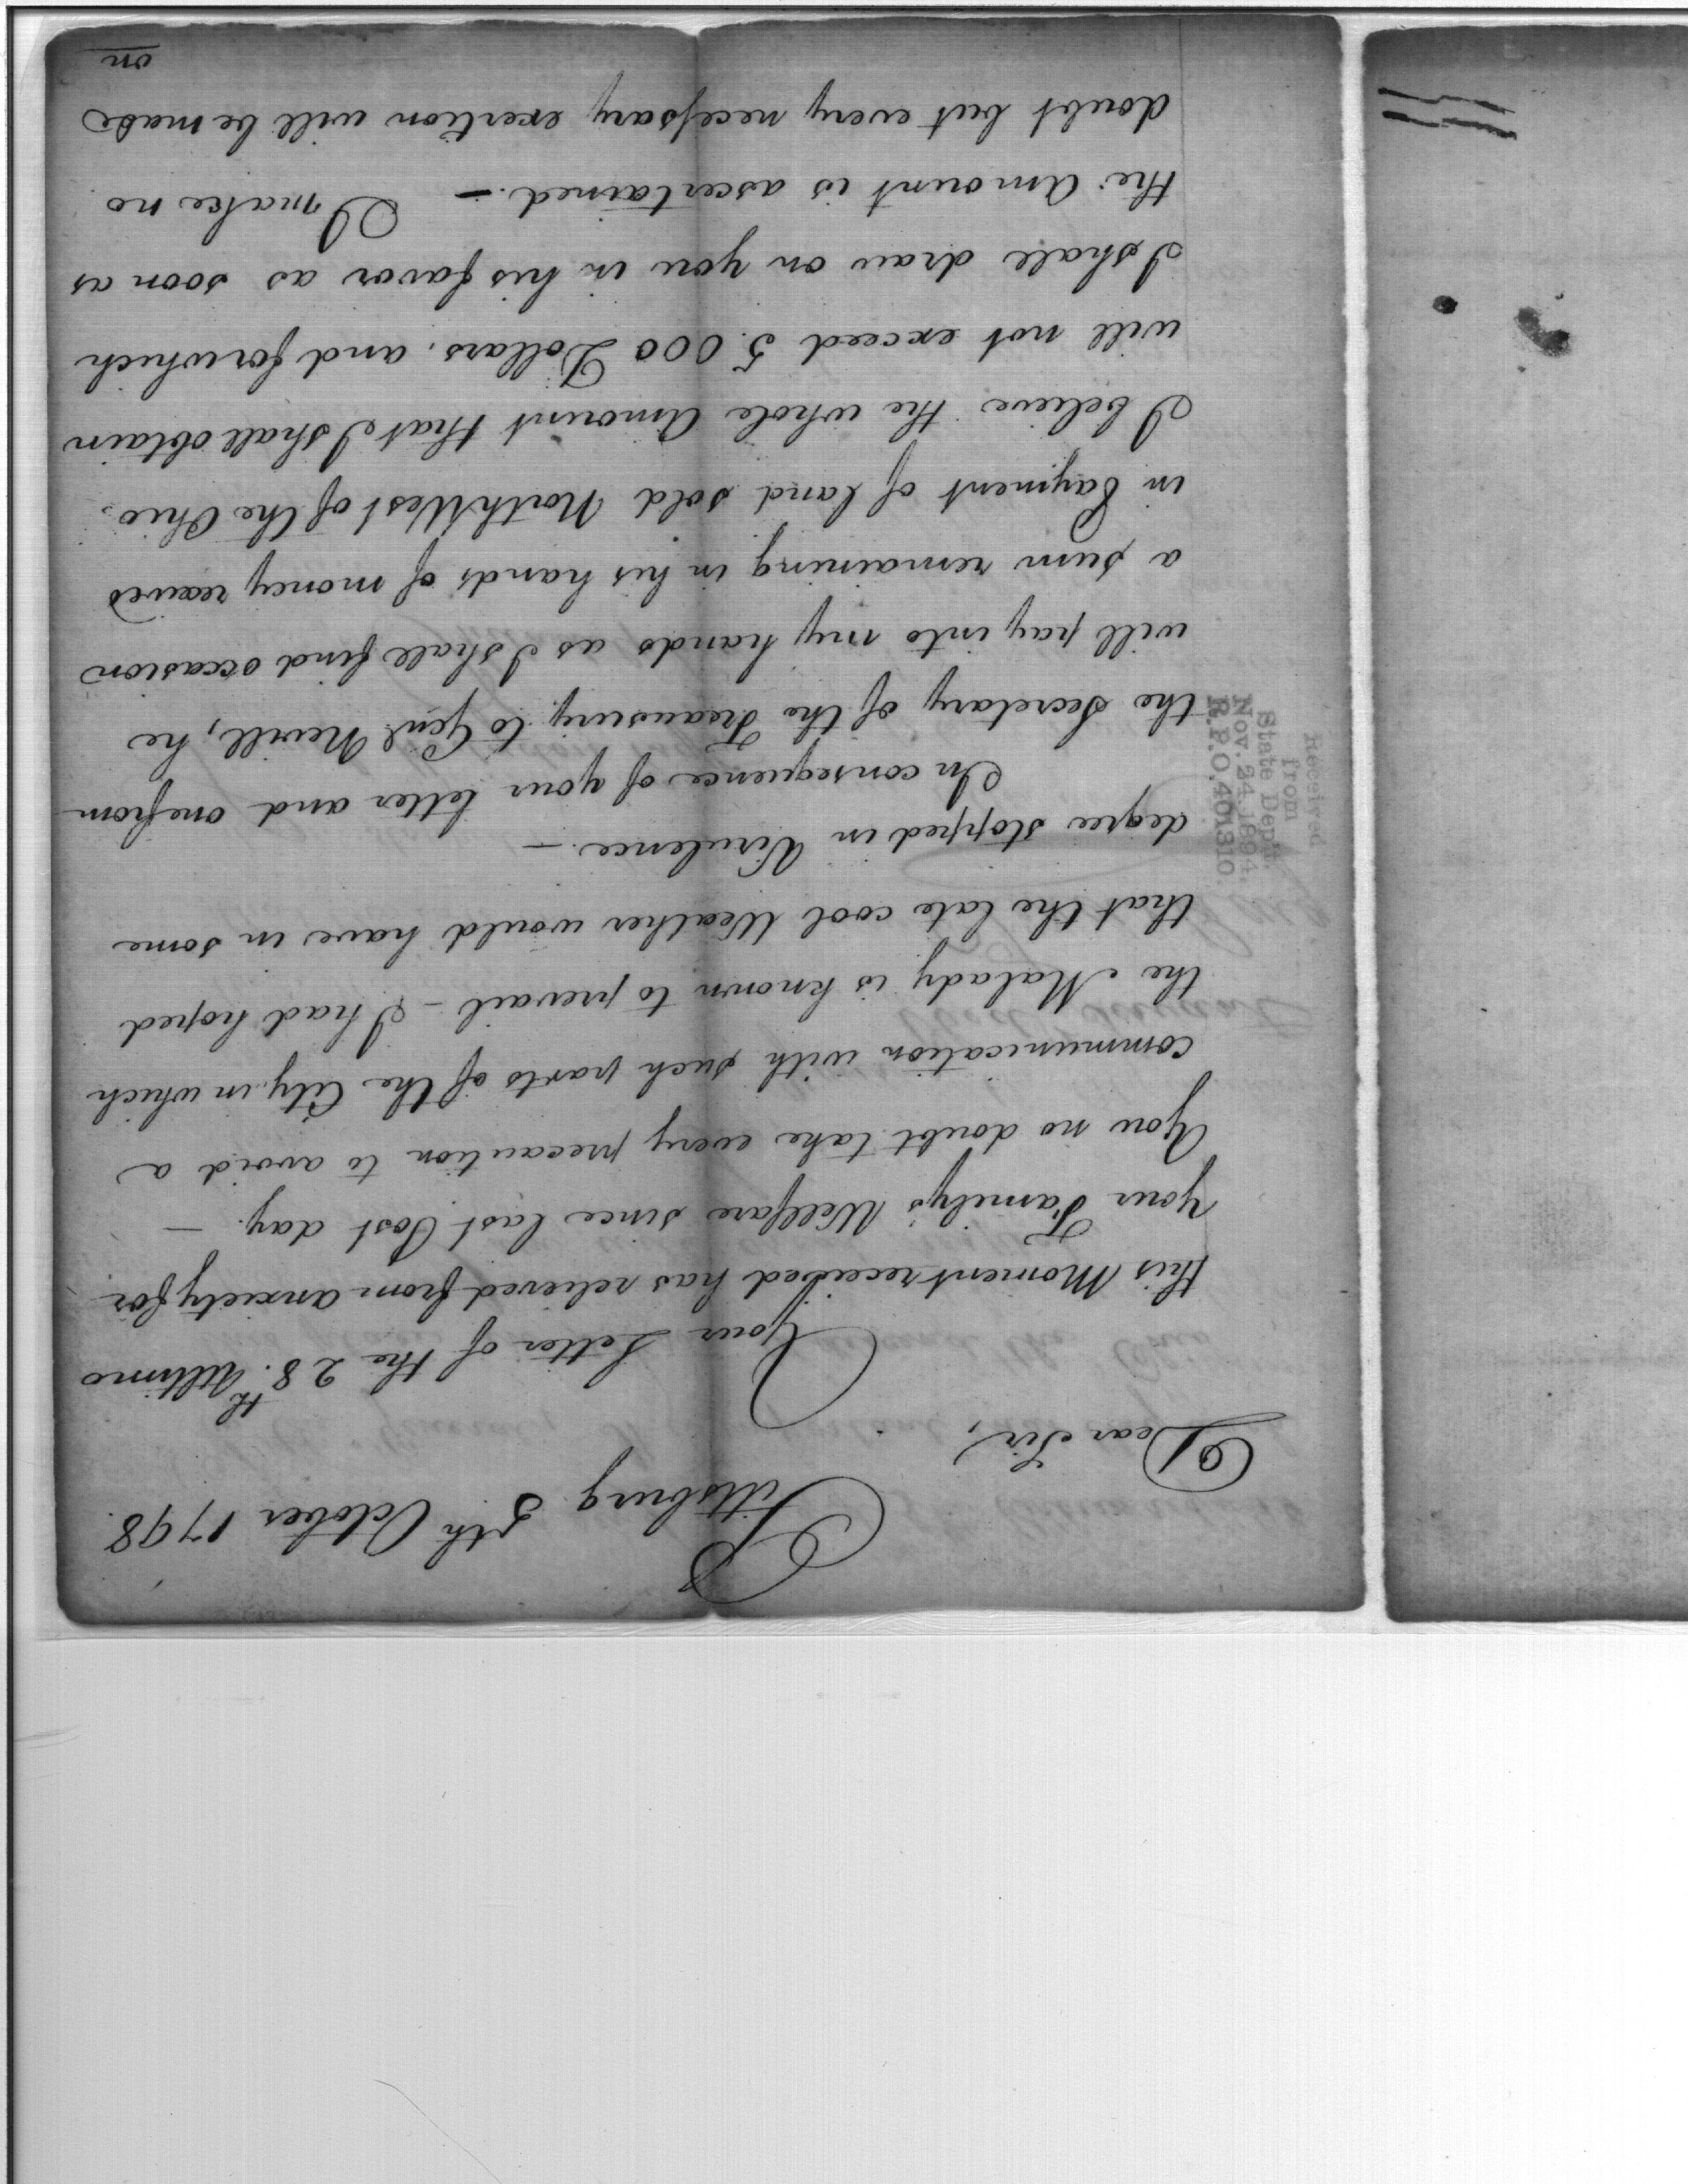 Pittsburg 5th October 1798.
Dear Sir,
Your Letter of the 28.th Ultimo
this Moment received has relieved from anxiety for
your Family's Wellfare since last Post day. —
You no doubt take every precaution to avoid a
communication with such parts of the City in which
the Malady is known to prevail - I had hoped
that the late cool Weather would have in some
degree stopped in Virulence. —
In consequence of your letter and one from
the Secretary of the Treasury to Genl. Nevill, he
will pay into my hands as I shall find occasion
a sum remaining in his hands of money received
in Payment of land sold North West of the Ohio.
I believe the whole Amount that I shall obtain
will not exceed 5.000 Dollars, and for which
I shall draw on you in his favor as soon as
the Amount is ascertained. — I make no
doubt but every necessary exertion will be made
on
Received
from
State Dept.
Nov. 24. 1894.
R.P.O. 401310.